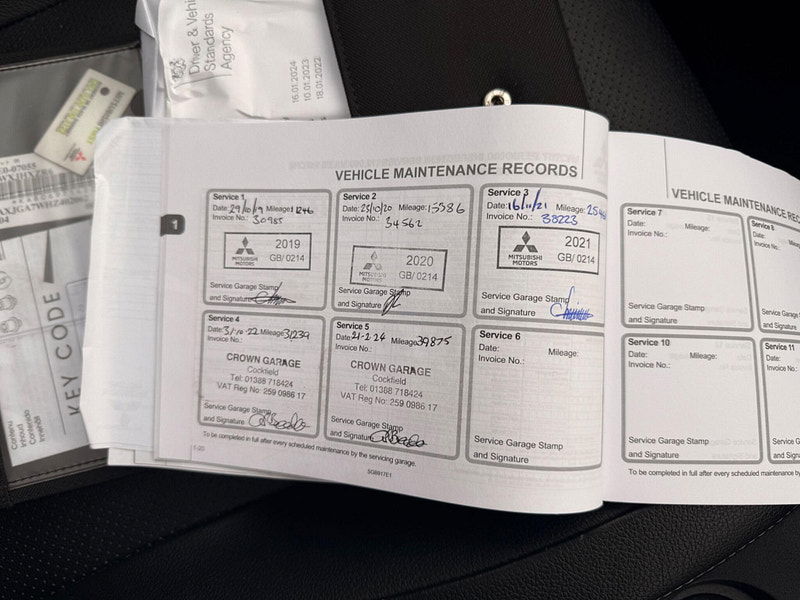 Driver & Vehi
Standards
Agency
16.01.2024
10.01.2023
18.01.2022
KEY CODE
Contenu
Inhoud
Contenido
Innehåll
1
VEHICLE MAINTENANCE RECORDS
Service 1
Date: 29/10/19 Mileage: 11246
Invoice No.: 30985
MITSUBISHI
MOTORS
2019
GB/ 0214
Service Garage Stamp
and Signature
Service 2
Date: 23/10/20 Mileage: 15386
Invoice No.: 34562
MITSUBISHI
MOTORS
2020
GB/ 0214
Service Garage Stamp
and Signature
Service 3
Date: 16/11/21 Mileage:
Invoice No.: 38223
MITSUBISHI
MOTORS
2021
GB/ 0214
Service Garage Stamp
and Signature
Service 4
Date: 31-10-22 Mileage: 31239
Invoice No.:
CROWN GARAGE
Cockfield
Tel: 01388 718424
VAT Reg No: 259 0986 17
Service Garage Stamp
and Signature
Service 5
Date: 21-2-24 Mileage: 39875
Invoice No.:
CROWN GARAGE
Cockfield
Tel: 01388 718424
VAT Reg No: 259 0986 17
Service Garage Stamp
and Signature
Service 6
Date: Mileage:
Invoice No.:
Service Garage Stamp
and Signature
To be completed in full after every scheduled maintenance by the servicing garage.
1-20
SG8917E1
VEHICLE MAINTENANCE REC
Service 7
Date: Mileage:
Invoice No.:
Service Garage Stamp
and Signature
Service 8
Date:
Invoice No.:
Service Ga
and Signatu
Service 10
Date: Mileage:
Invoice No.:
Service Garage Stamp
and Signature
Service 11
Date:
Invoice No.:
Service Ga
and Signa
To be completed in full after every scheduled maintenance by